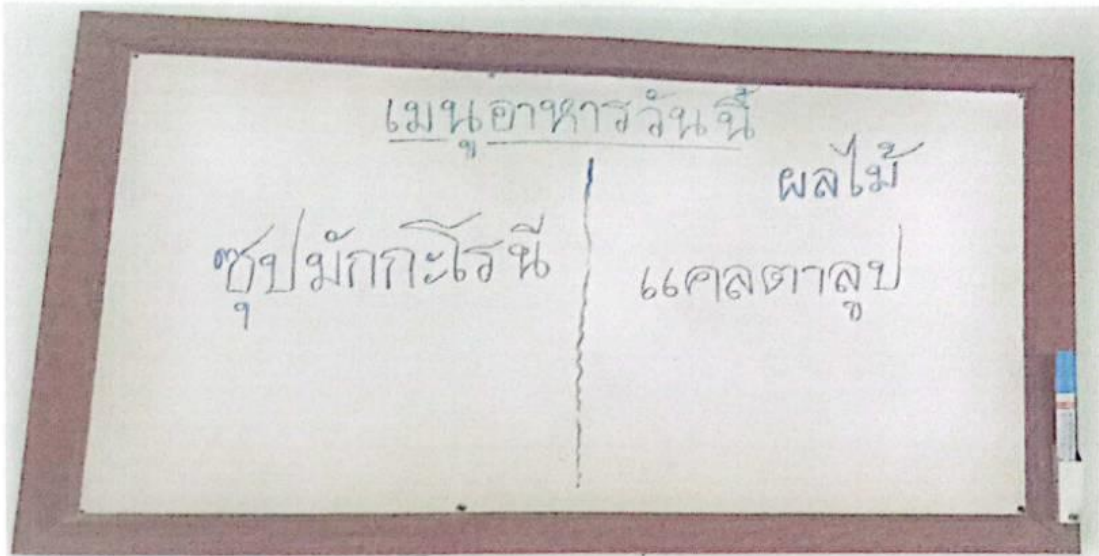 เมนูอาหารวันนี้
ซุปมักกะโรนี
ผลไม้
แคลตาลูป